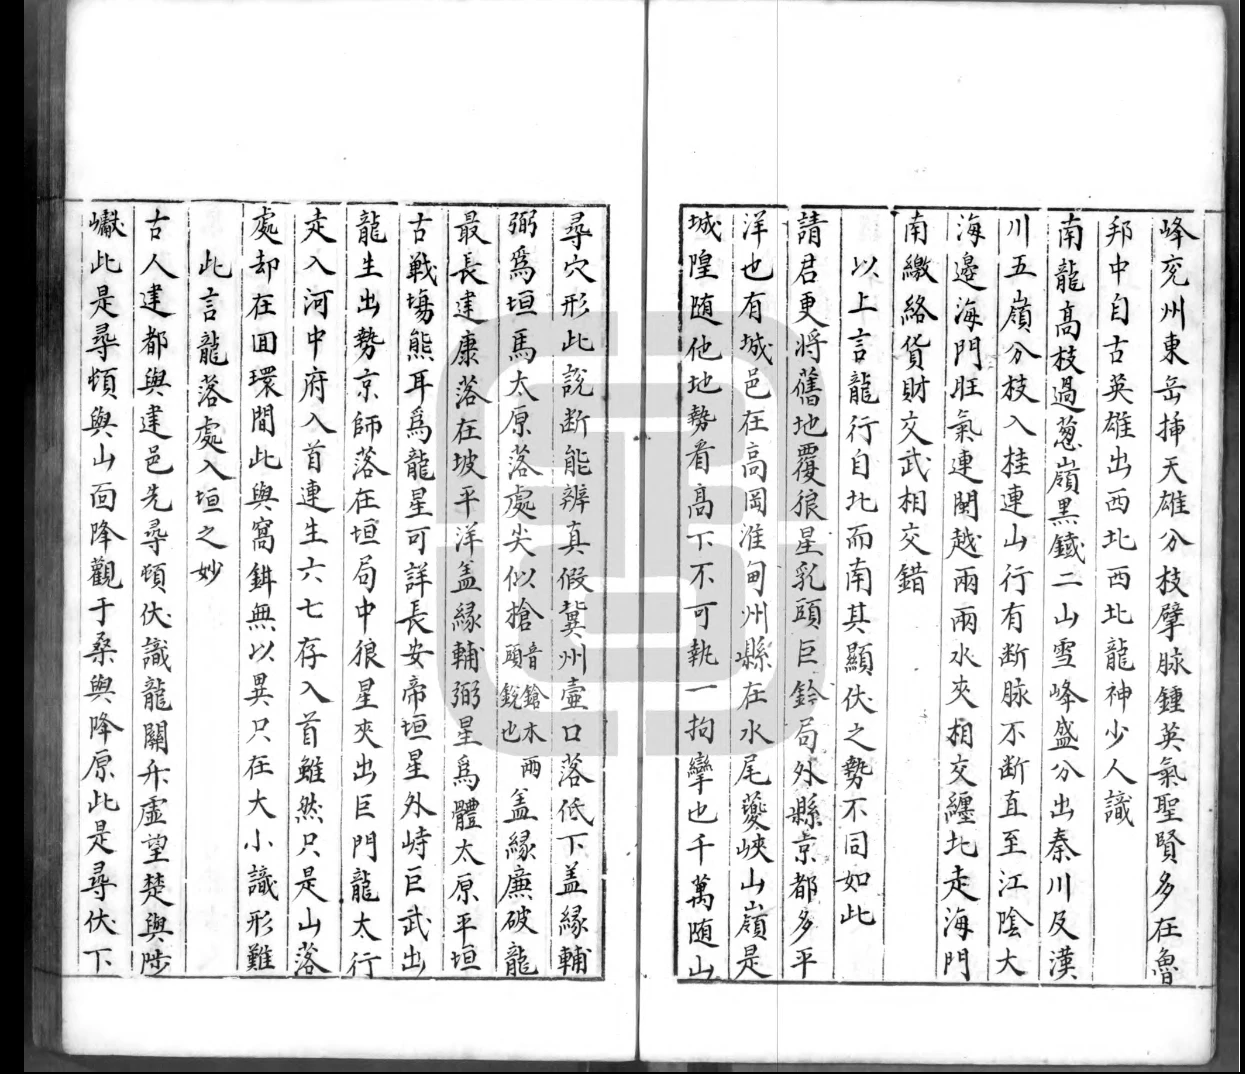 峰兖州東岳揷天雄分枝擘脉鍾英氣聖賢多在魯
邦中自古英雄出西北西北龍神少人識
南龍高枝過葱嶺黒鐵二山雪峰盛分出秦川及漢
川五嶺分枝入桂連山行有断脉不断直至江陰大
海邊海門旺氣連閩越兩兩水夾相交纒北走海門
南繳絡貨財交武相交錯
以上言龍行自北而南其顯伏之勢不同如此
請君更將舊地覆狼星乳頭巨鈐局外縣京都多平
洋也有城邑在高岡淮甸州縣在水尾夔峽山嶺是
城隍随他地勢看高下不可執一拘攣也千萬随山
尋穴形此説断能辨真假冀州壷口落低下盖縁輔
弼爲垣馬太原落處尖似搶音鎗本兩頭鋭也盖縁廉破龍
最長建康落在坡平洋盖縁輔弼星爲體太原平垣
古戰塲熊耳爲龍星可詳長安帝垣星外峙巨武出
龍生出勢京師落在垣局中狼星夾出巨門龍太行
走入河中府入首連生六七存入首雖然只是山落
處却在囬環間此與窩鉗無以異只在大小識形難
此言龍落處入垣之妙
古人建都與建邑先尋頓伏識龍關升虚望楚與陟
巘此是尋頓與山囬降觀于桑與降原此是尋伏下